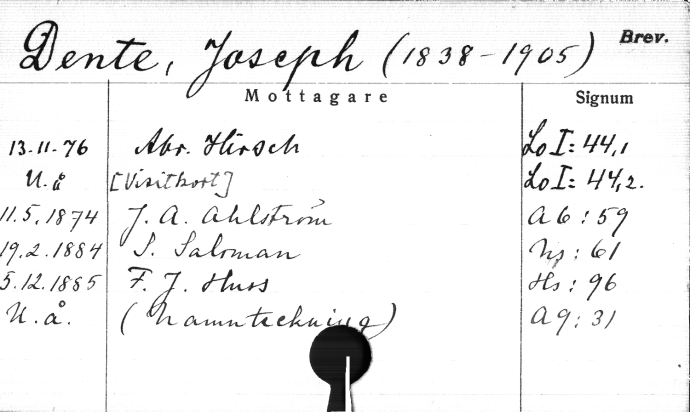 Dente, Joseph (1838-1905) Brev.
Mottagare Signum
13.11.76 Abr. Hirsch Lo I: 44,1
U.å [Visitkort] Lo I: 44,2.
11.5.1874 J. A. Ahlström A6: 59
19.2.1884 S. Saloman : 61
5.12.1885 F. J. Huss Hs: 96
U.å. (Namnteckning) A9: 31